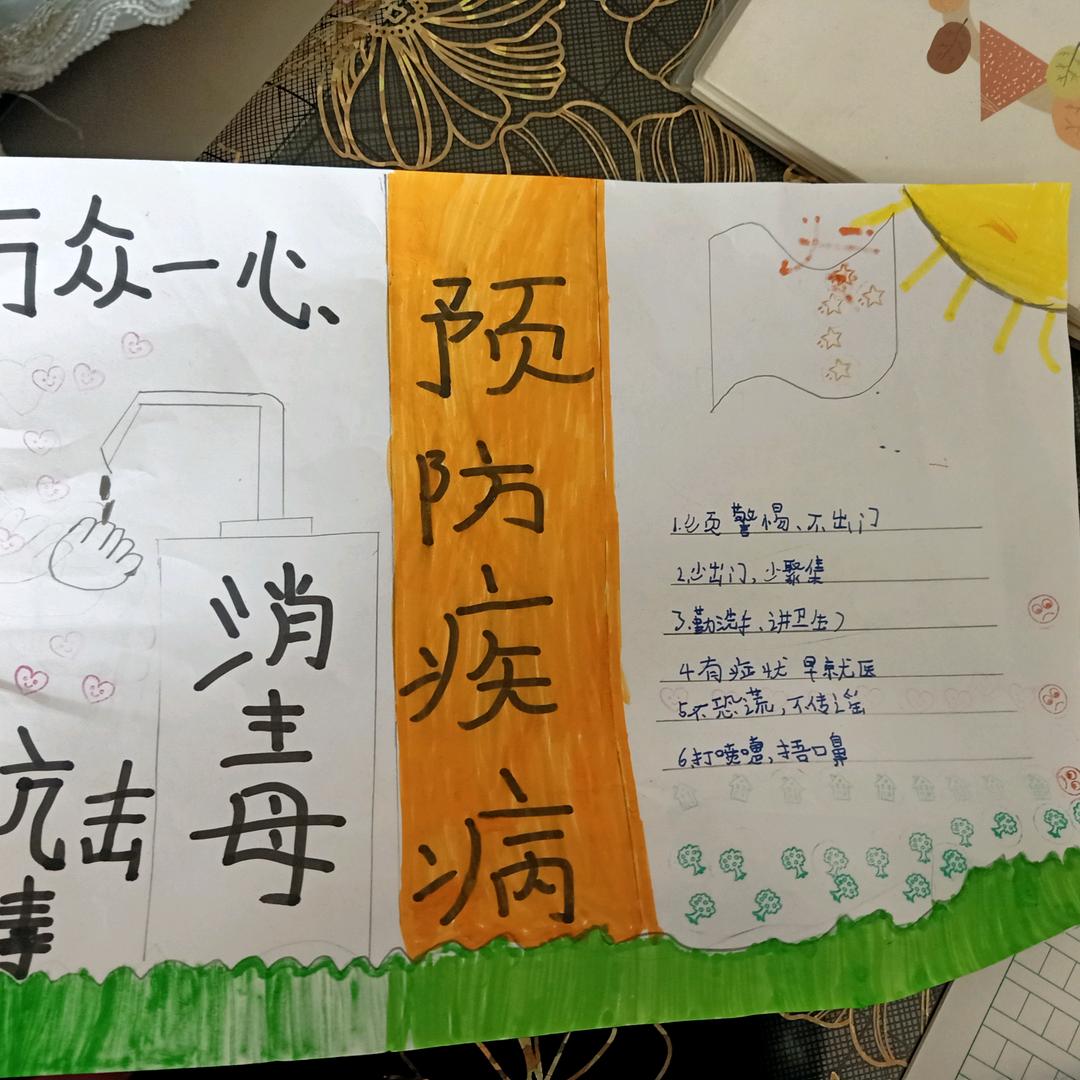 万众一心、
抗击
消毒
预防疾病
1.必须警惕、不出门
2.少出门,少聚集
3.勤洗手、讲卫生
4.有症状 早就医
5.不恐慌,不传谣
6.打喷嚏,捂口鼻